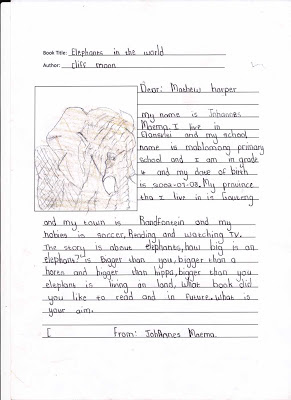 Book Title: Elephants in the world
Author: cliff moon
Dear: Mathew harper
my name is Johannes
Moema. I live in
and my school
name is mablomong primary
school and I am in grade
4 and my date of birth
is 2002-07-08. My province
tha I live in is Gauteng
and my town is Randfontein and my
hobies is soccer, Reading and watching Tv.
The story is about elephants, how big is an
elephant? is bigger than you, bigger than a
horen and bigger than hippo, bigger than you
elephant is living on land, what book did
you like to read and in future. What is
your aim.
From: JohAnnes Moema.